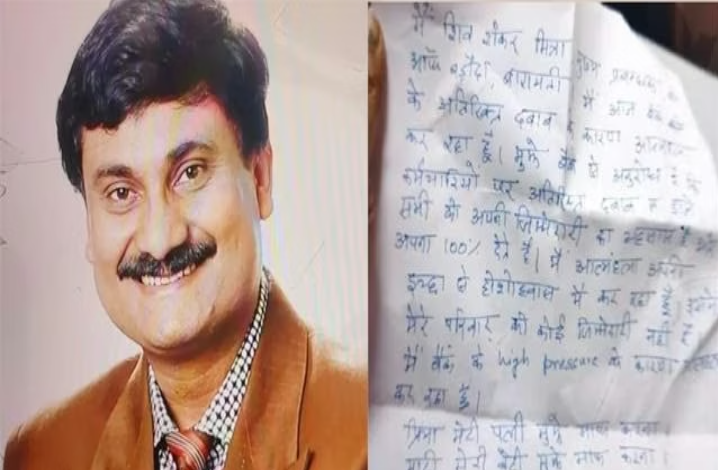 मैं शिव शंकर मित्रा मुख्य प्रबन्धक
ऑफ बड़ौदा, बारामती में आज बैंक
के अतिरिक्त दबाव के कारण
कर रहा हूँ। मुझे बैंक से अनुरोध है
कर्मचारियों पर अतिरिक्त दबाव न
सभी को अपनी जिम्मेदारी का है
अपना 100% देते हैं। मैं आत्महत्या अपनी
इच्छा से होशोहवास में कर रहा हूँ।
मेरे परिवार की कोई जिम्मेदारी नहीं है
मैं बैंक के high pressure के कारण
कर रहा हूँ।
प्रिया मेरी पत्नी मुझे माफ करना।
मेरी बेटी मुझे माफ करना।